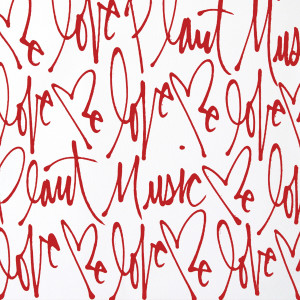 ♥e love Plant Mus
love ♥e love ♥e love
Plant Music ♥e
love ♥e love ♥e love